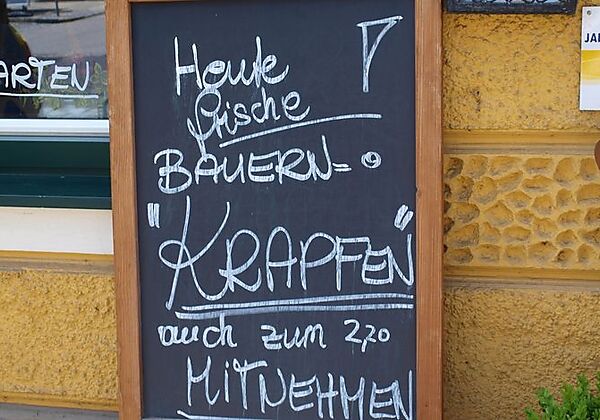 ARTEN
Heute !
frische
BAUERN=
"KRAPFEN"
auch zum 2,20
MITNEHMEN